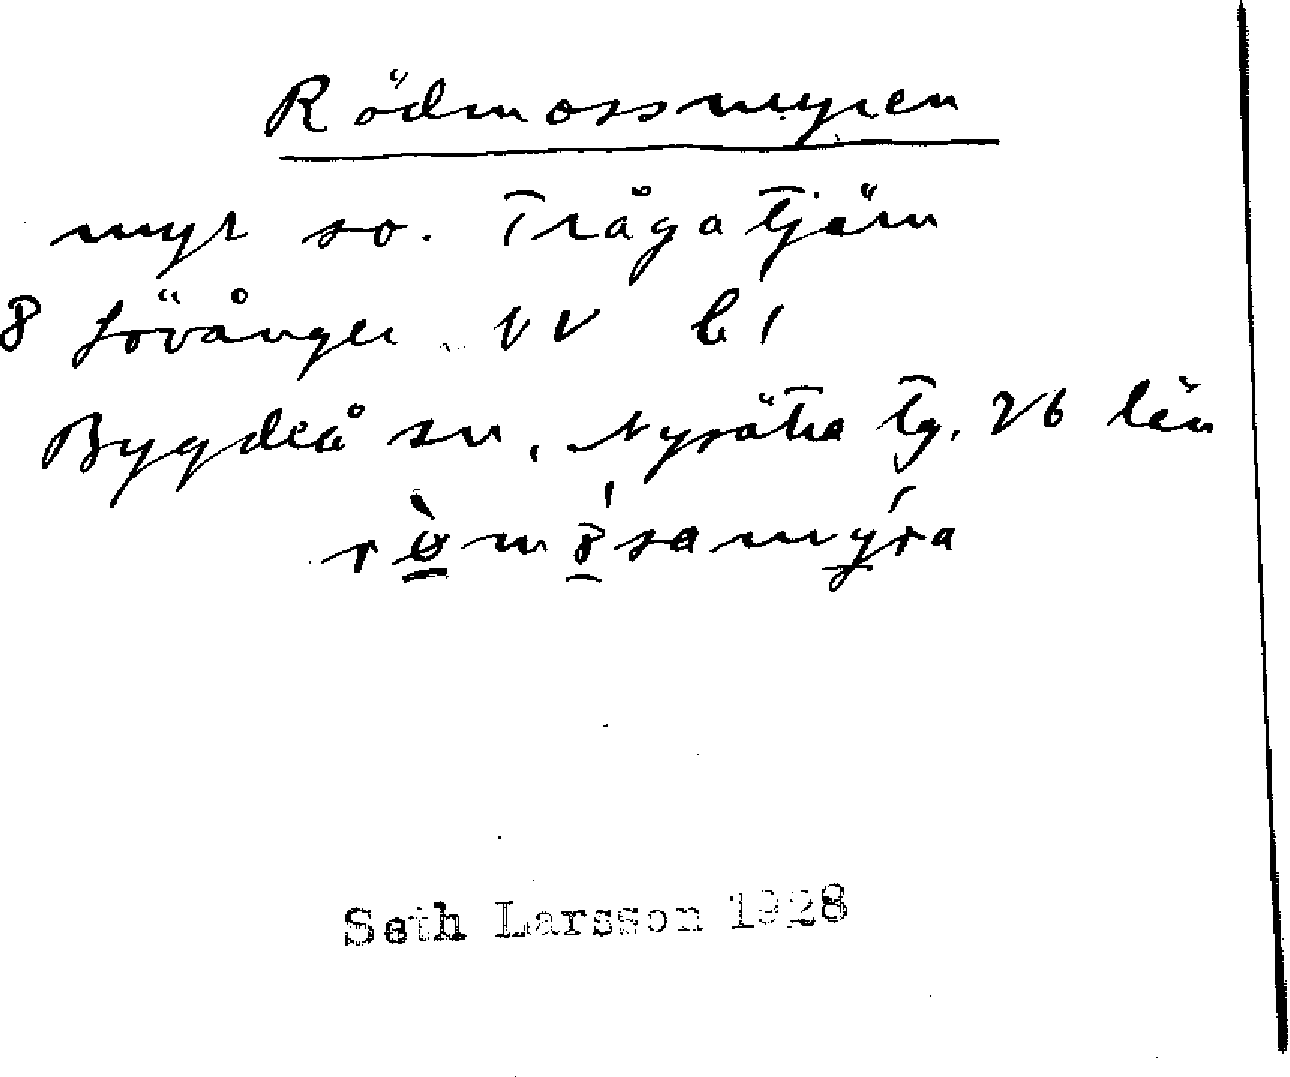 Rödmossmyren
myr so. Trågatjärn
8 Lövånger VV b 1
Bygdeå sn, Nysätra tg. Vb län
Seth Larsson 1928